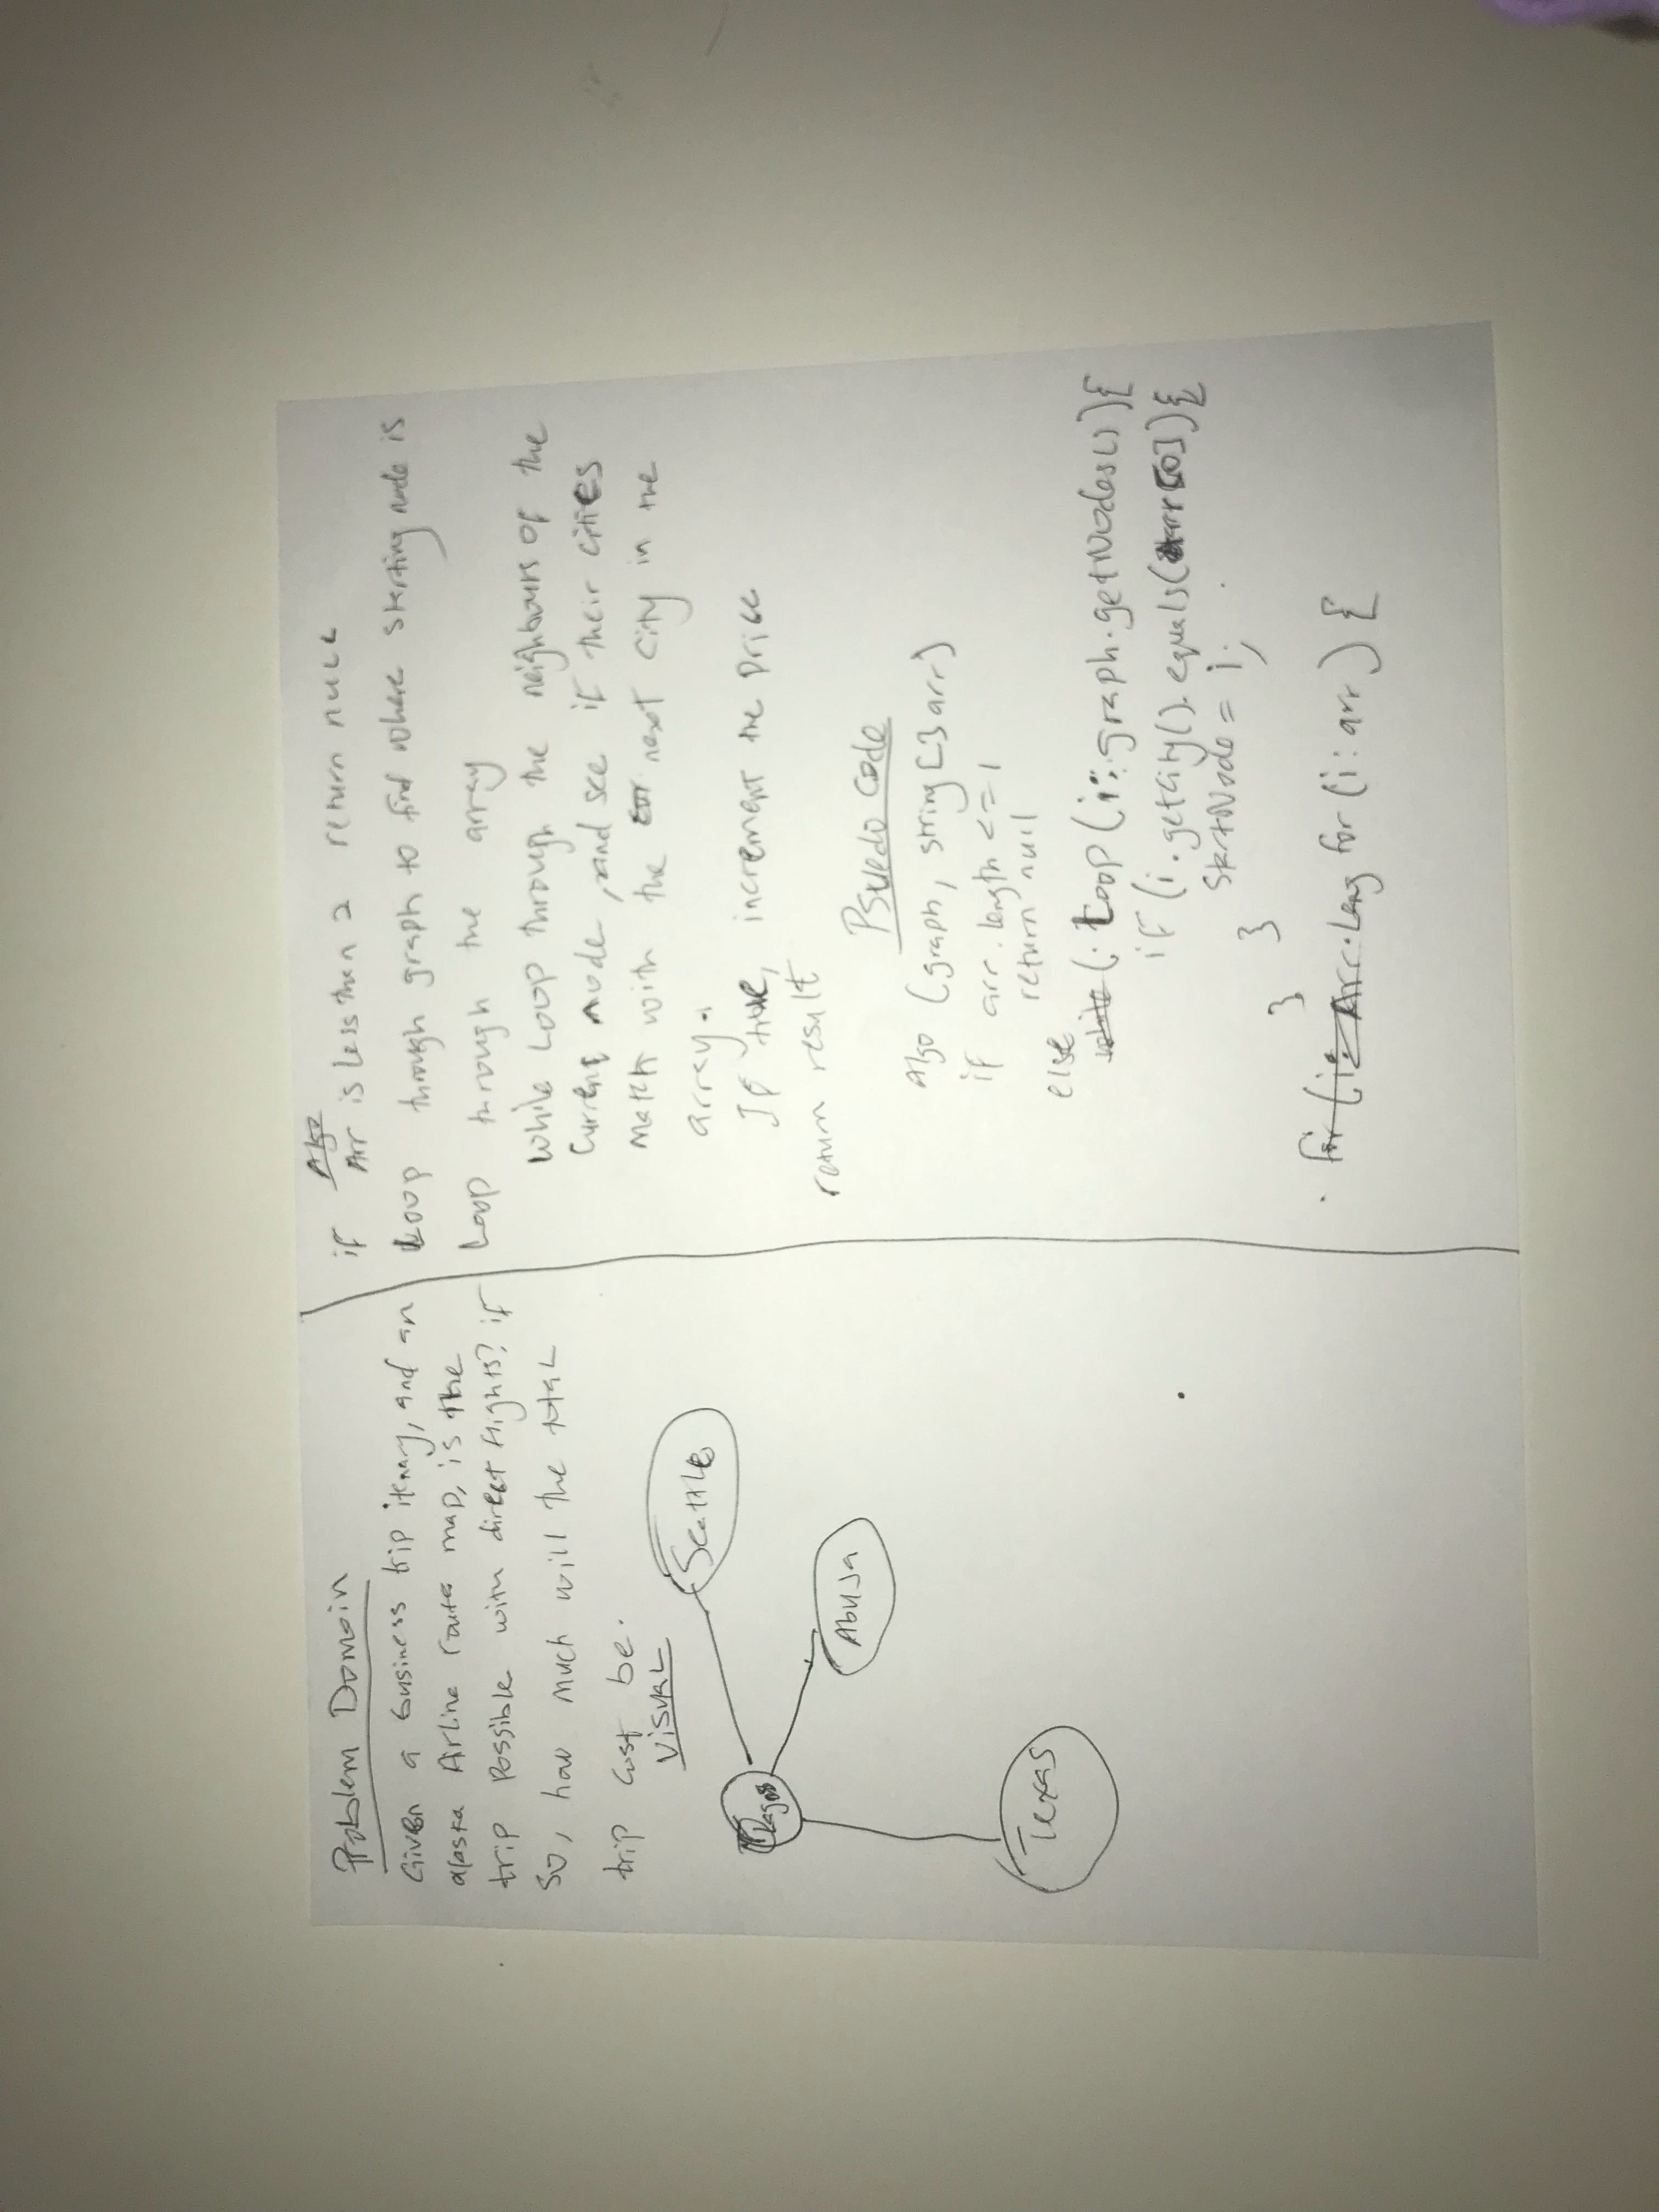 Problem Domain
Given a business trip itenary, and an
alaska Airline route map, is the
trip Possible with direct flights? if
so, how much will the total
trip cost be.
VISUAL
Lagos
Seattle
Abuja
Texas
Algo
if Arr is less then 2 return null
Loop through graph to find where starting node is
Loop through the array
while Loop through the neighbours of the
current node, and see if their cities
match with the next city in the
array.
If true, increment the price
return result
Psuedo Code
Algo (graph, string[] arr)
if arr.length <= 1
return null
else
while (: Loop (i: graph.getNodes()){
if (i.getCity().equals(arr[0]){
StartNode = i;
}
}
for (i: Arr.Leng for (i: arr) {